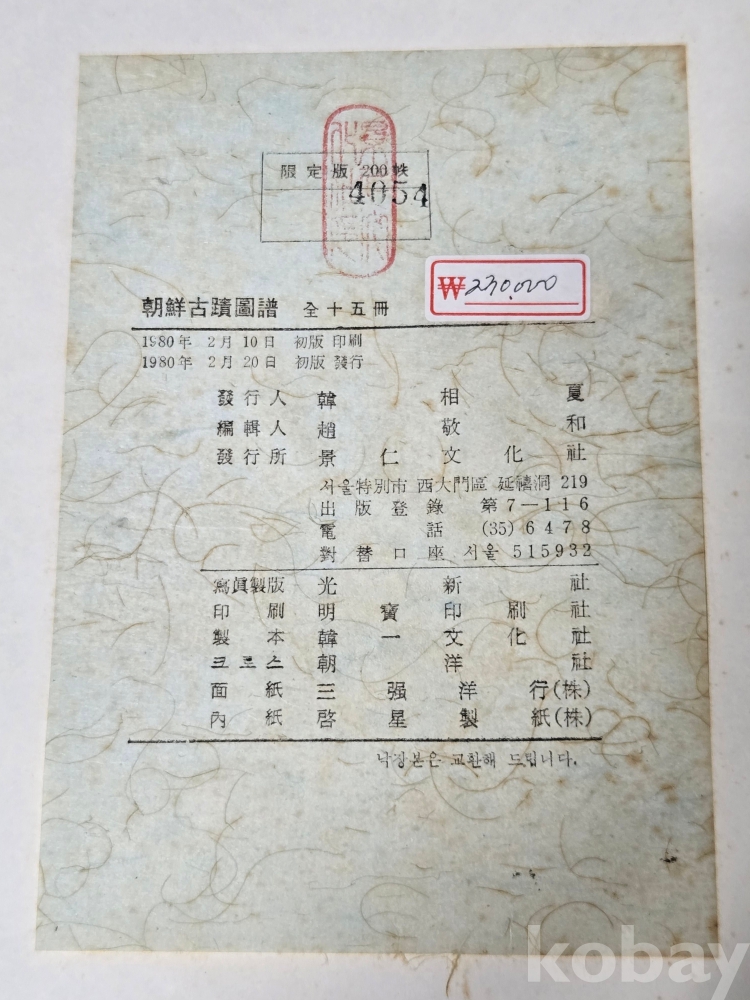 限定版 200帙
4054
₩230,000
朝鮮古蹟圖譜 全十五冊
1980年 2月 10日 初版 印刷
1980年 2月 20日 初版 發行
發行人 韓相夏
編輯人 趙敬和
發行所 景仁文化社
서울特別市 西大門區 延禧洞 219
出版登錄 第7—116
電話 (35) 6478
對替口座 서울 515932
寫眞製版 光新社
印刷 明寶印刷社
製本 韓一文化社
크로스 朝洋社
面紙 三强洋行(株)
內紙 啓星製紙(株)
낙장본은 교환해 드립니다.
kobay